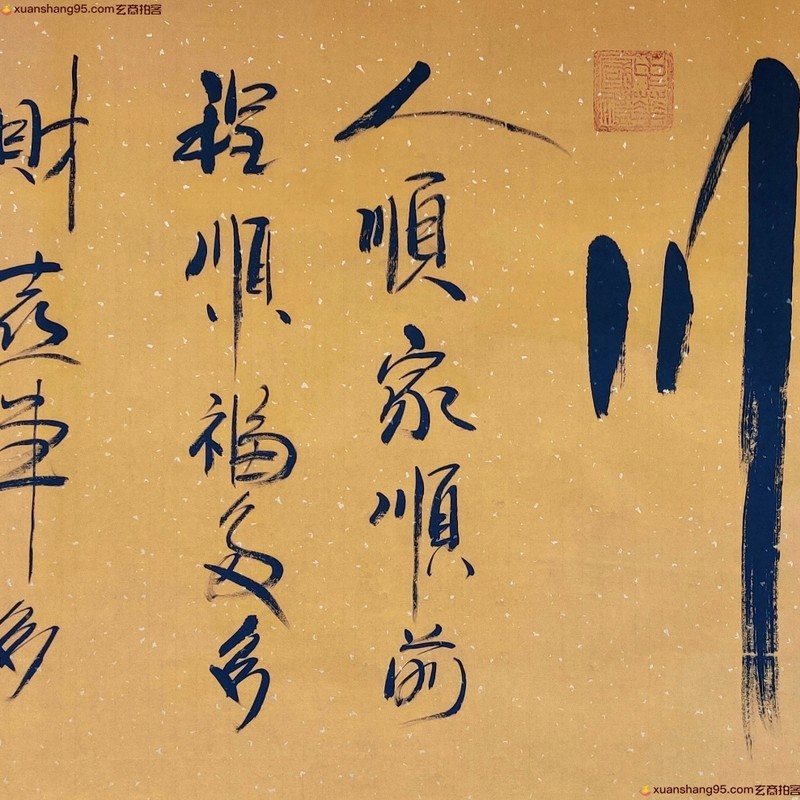 xuanshang95.com玄商拍客
人順家順前
程順福多
財喜事多
xuanshang95.com玄商拍客